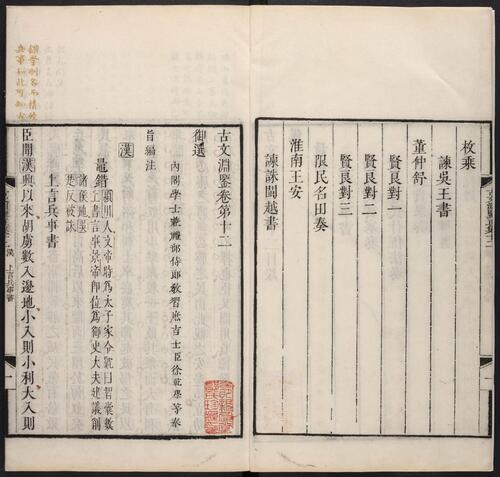 枚乘
諫吳王書
董仲舒
賢良對一
賢良對二
賢良對三
限民名田奏
淮南王安
諫誅閩越書
古文淵鑒卷第十二
御選
內閣學士兼禮部侍郎教習庶吉士臣徐乾學等奉
旨編注
漢
鼂錯
潁川人文帝時為太子家令號曰智囊數
上書言事景帝即位為御史大夫建議創
諸侯地吳
楚反被誅
上言兵事書
臣聞漢興以來胡虜數入邊地小入則小利大入則